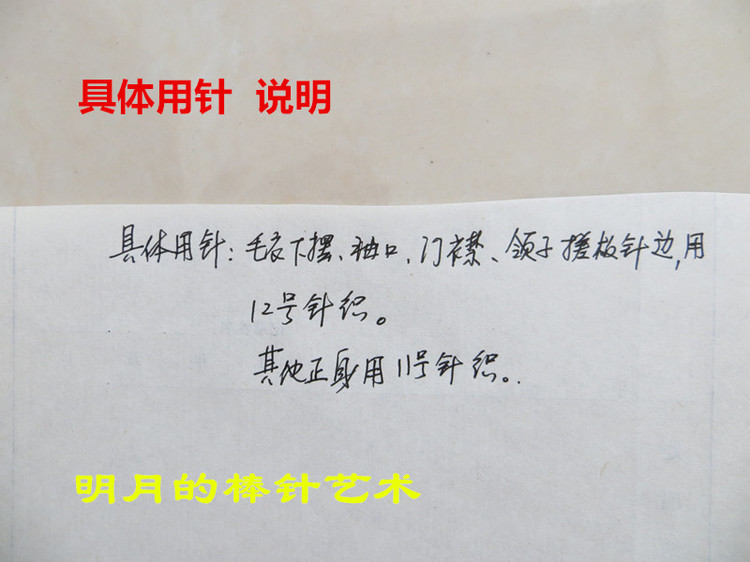 具体用针 说明
具体用针：毛衣下摆、袖口、门襟、领子搓板针边,用
12号针织。
其他正身用11号针织。
明月的棒针艺术